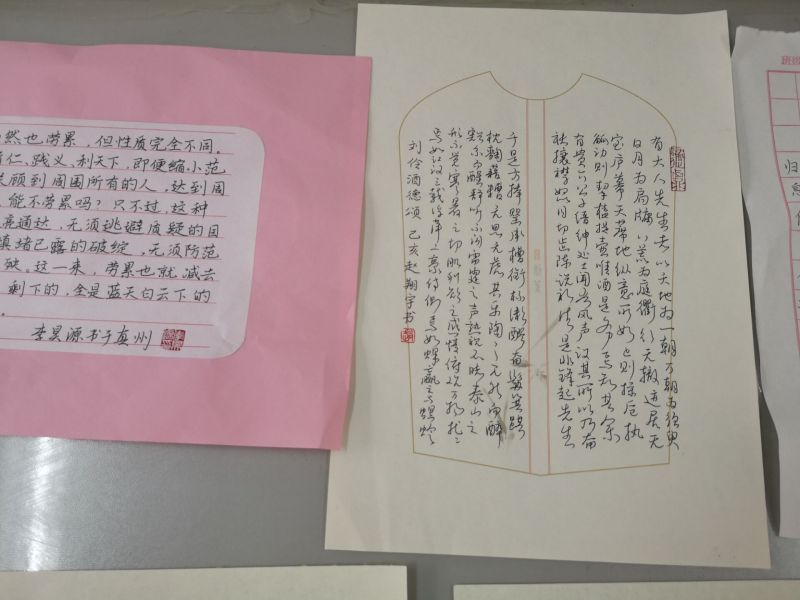 然也劳累,但性质完全不同。
仁、践义、利天下,即便缩小范
顾到周围所有的人,达到周
能不劳累吗?只不过,这种
亮通达,无须逃避质疑的目
填堵已露的破绽,无须防范
殃。这一来,劳累也就减去
剩下的,全是蓝天白云下的
李昊源书于惠州
有大人先生者以天地为一朝万朝为须臾
日月为扃牖八荒为庭衢行无辙迹居无
室庐幕天席地纵意所如止则操卮执
觚动则挈榼提壶唯酒是务焉知其余
有贵介公子缙绅处士闻吾风声议其所以乃奋
袂攘襟怒目切齿陈说礼法是非锋起先生
于是方捧罂承槽衔杯漱醪奋髯箕踞
枕麴藉糟无思无虑其乐陶〻兀然而醉
豁尔而醒静听不闻雷霆之声熟视不睹泰山之
形不觉寒暑之切肌利欲之感情俯观万物扰〻
焉如江汉之载浮萍二豪侍侧焉如蜾蠃之与螟蛉
刘伶酒德颂 己亥赵翔宇书
班级
归